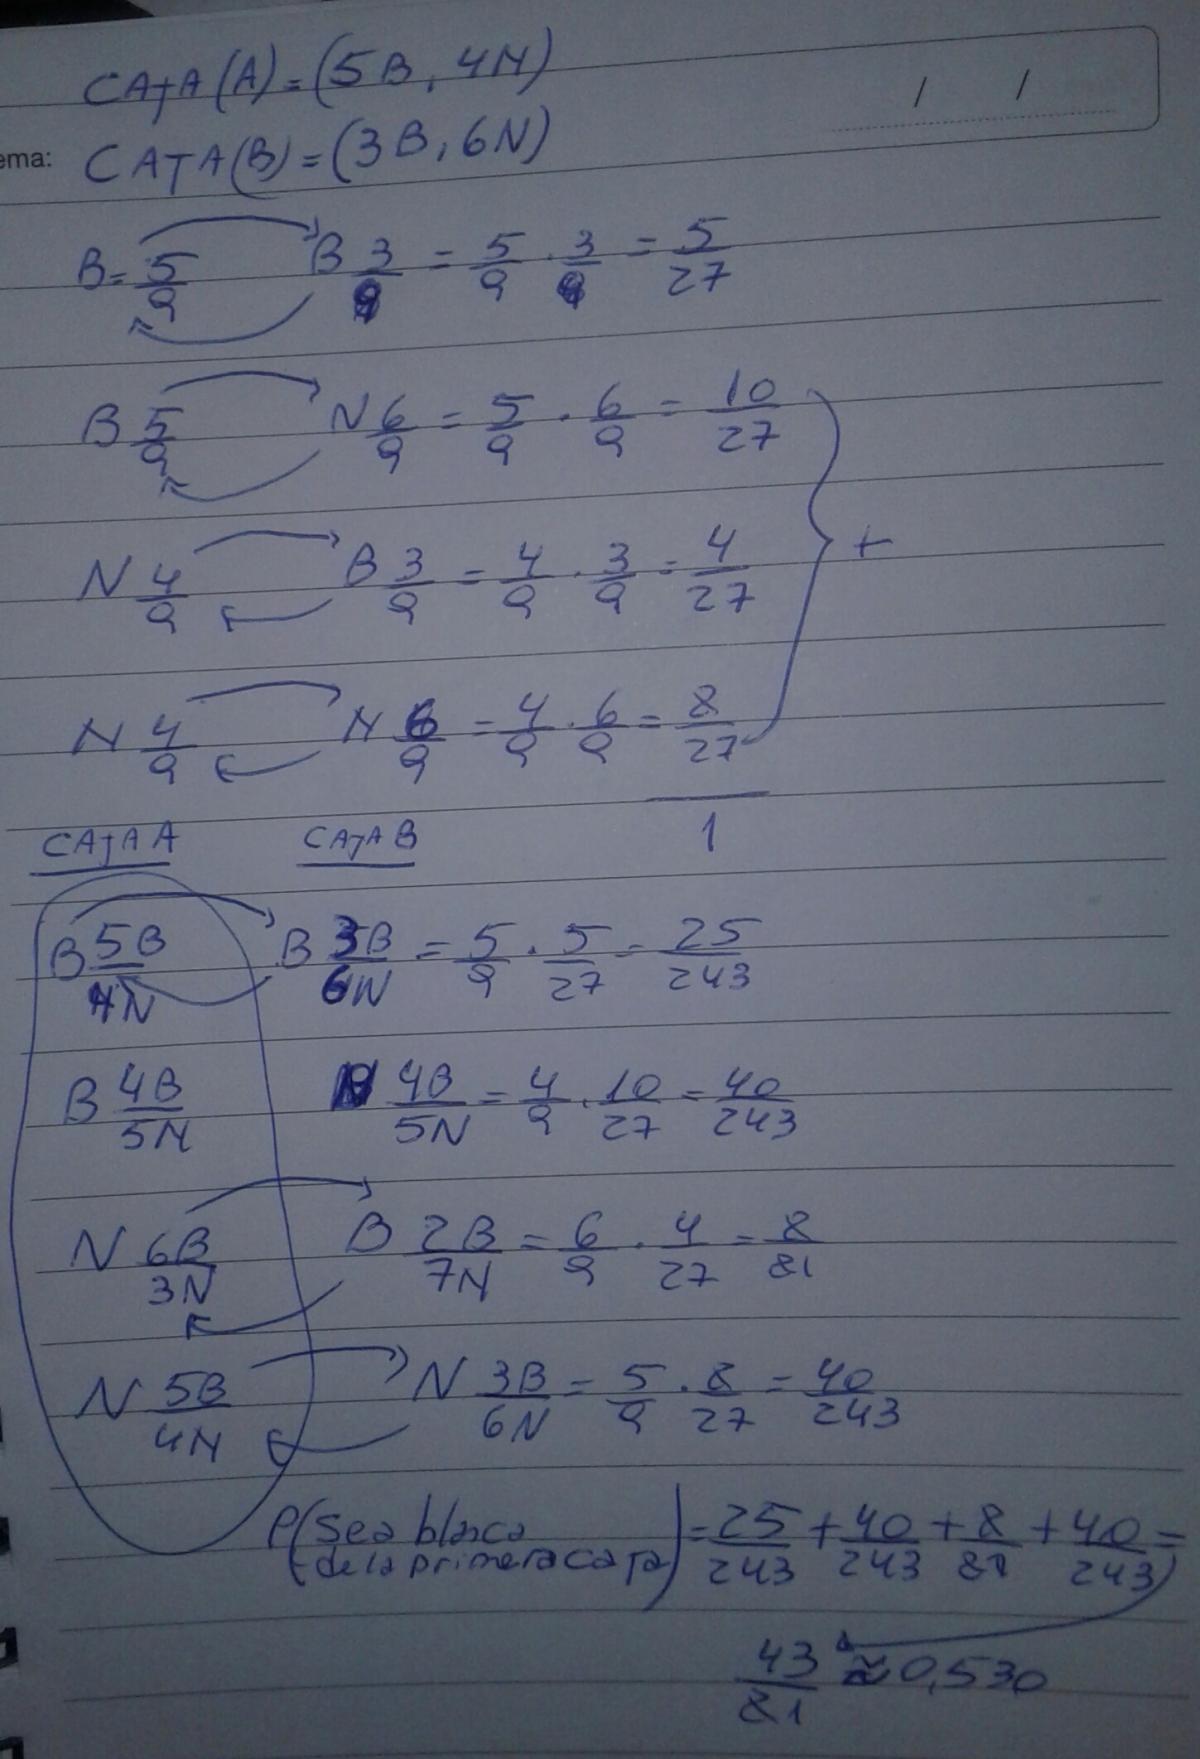 CAJA(A)=(5B, 4N)
ema: CAJA(B)=(3B, 6N)
/ /
B=5/9 B 3/9 = 5/9 . 3/9 = 5/27
B 5/9 N 6/9 = 5/9 . 6/9 = 10/27
N 4/9 B 3/9 = 4/9 . 3/9 = 4/27 +
N 4/9 N 6/9 = 4/9 . 6/9 = 8/27
1
CAJA A CAJA B
B 5B/4N B 3B/6N = 5/9 . 5/27 = 25/243
B 4B/5N N 4B/5N = 4/9 . 10/27 = 40/243
N 6B/3N B 2B/7N = 6/9 . 4/27 = 8/81
N 5B/4N N 3B/6N = 5/9 . 8/27 = 40/243
P(Sea blanca de la primera caja) = 25/243 + 40/243 + 8/81 + 40/243 =
43/81 ≈ 0,530